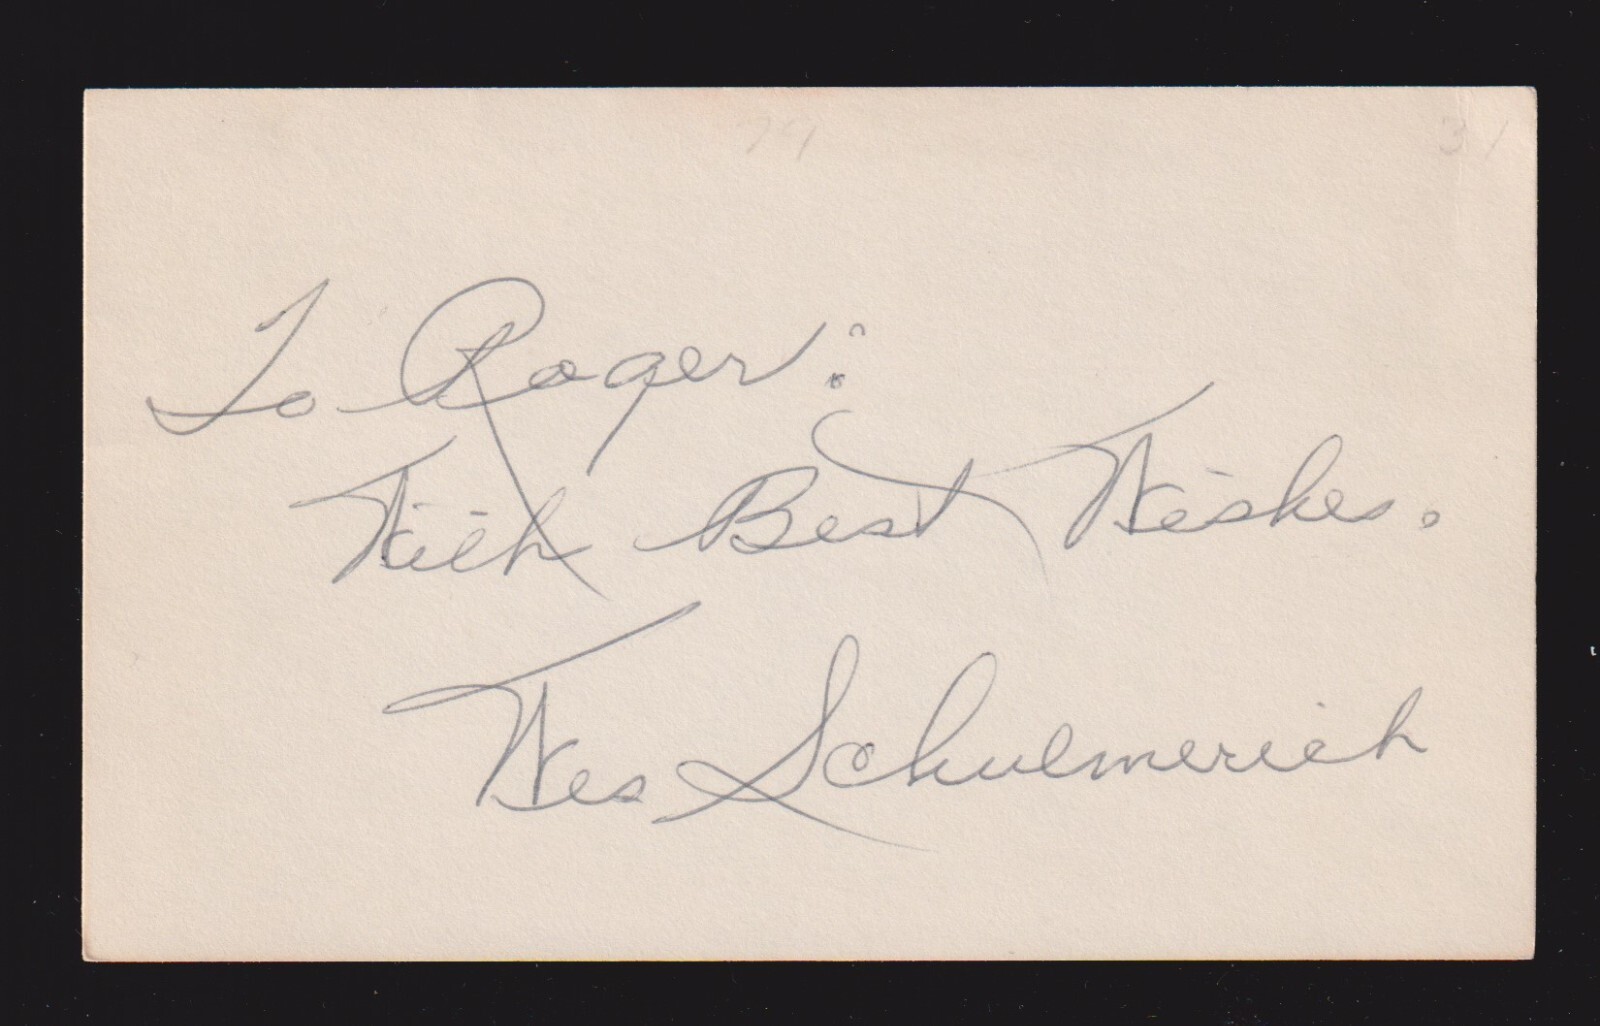 79 31
To Roger:
With Best Wishes.
Wes Schulmerich